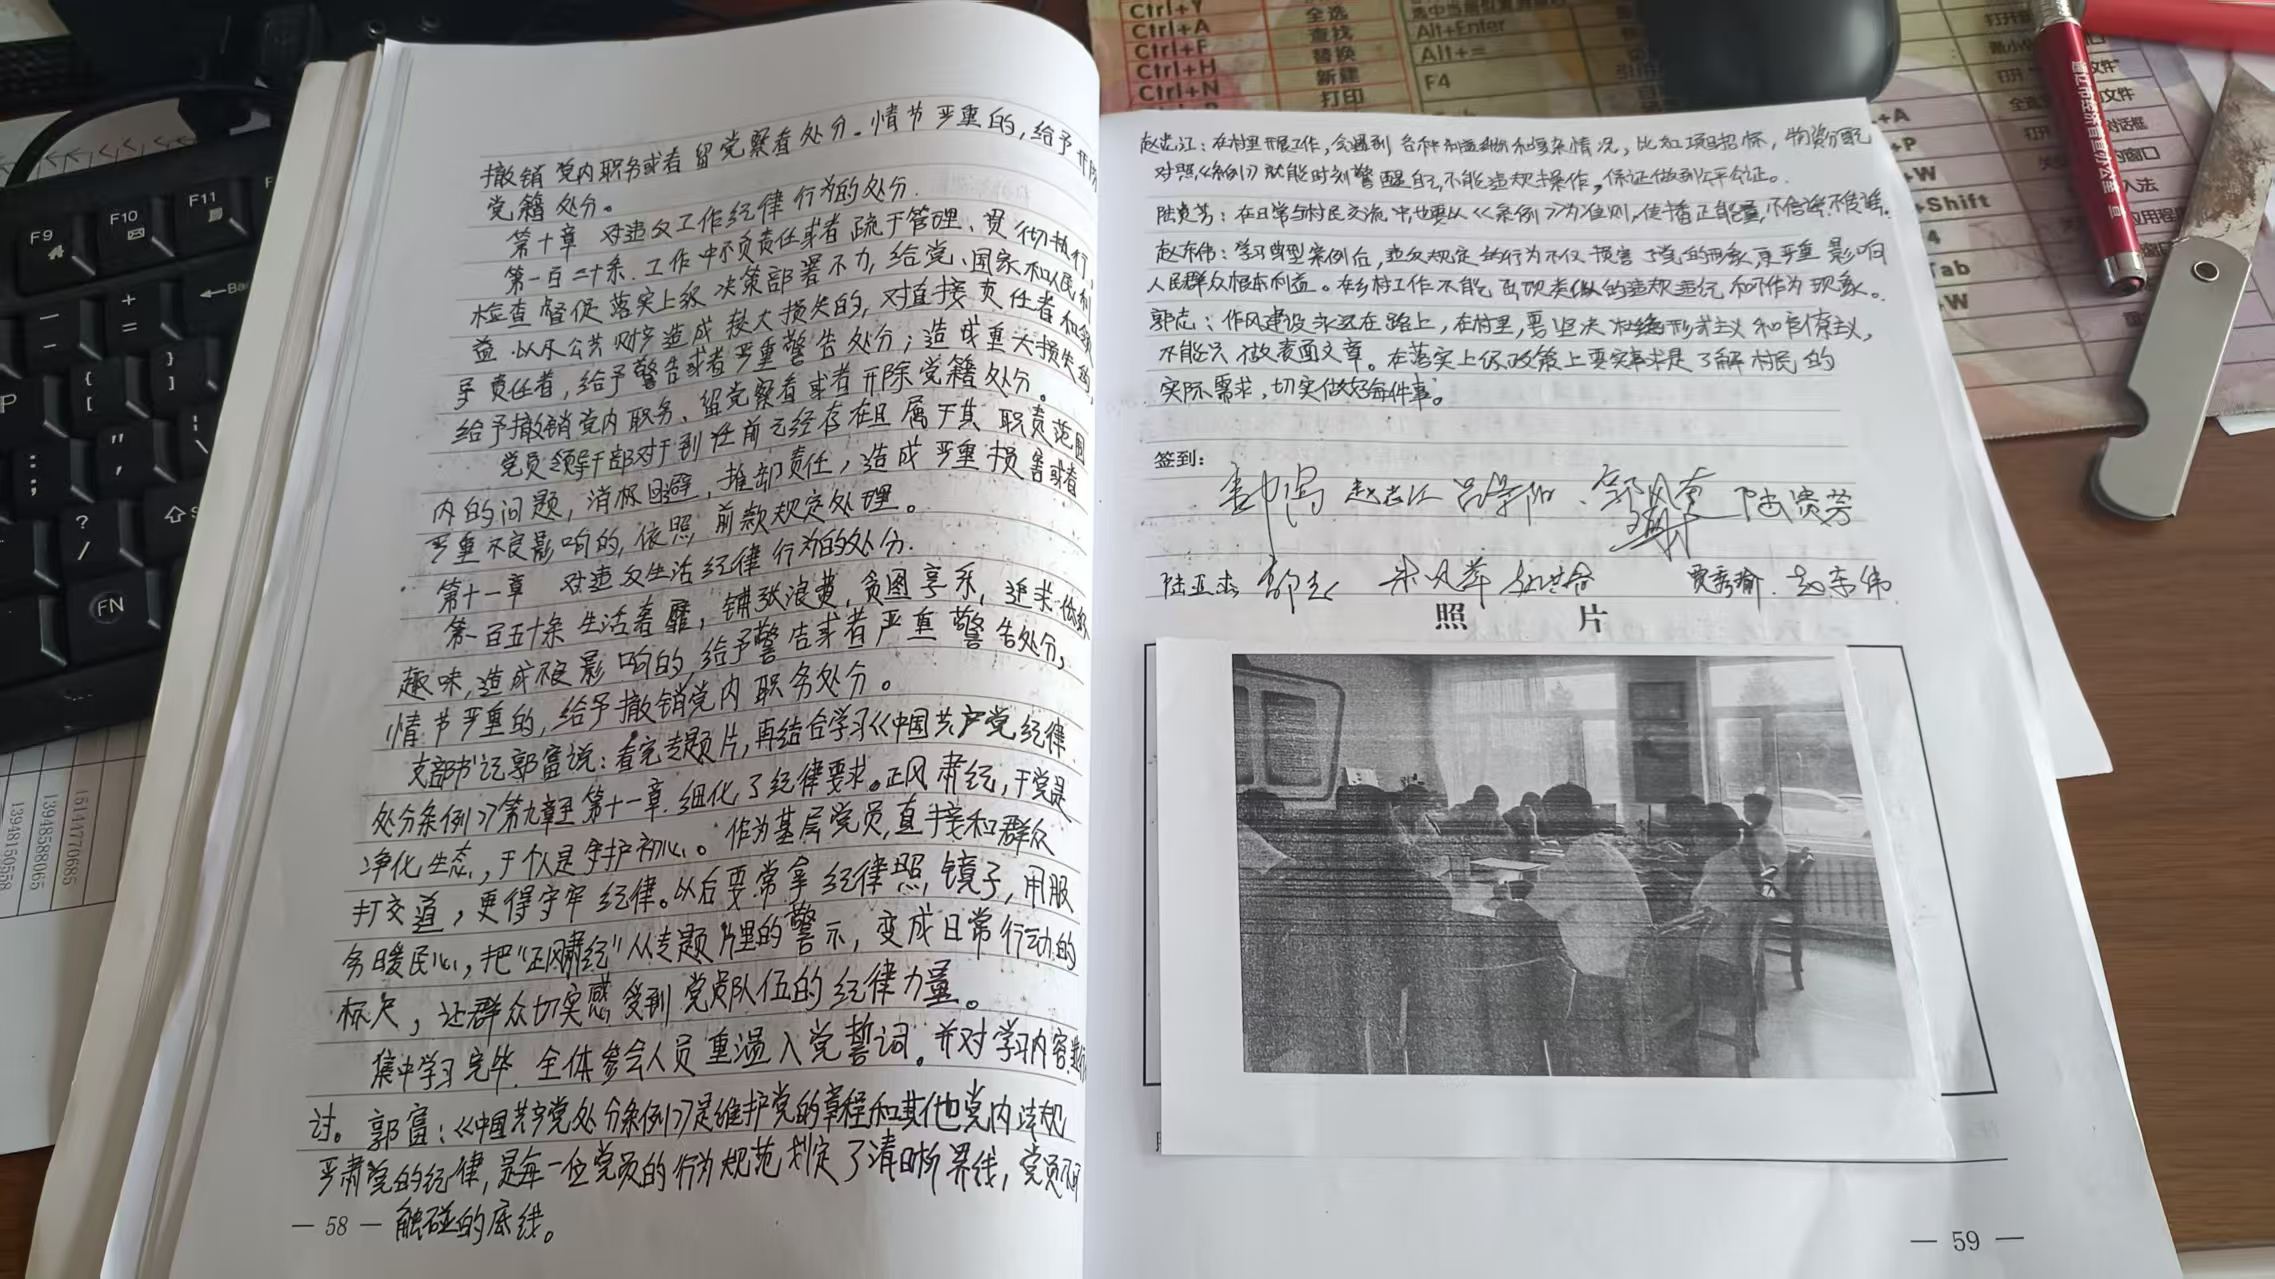 撤销党内职务或者留党察看处分。情节严重的,给予开除
党籍处分。
第十章 对违反工作纪律行为的处分.
第一百三十条.工作中不负责任或者疏于管理、贯彻执行、
检查督促落实上级决策部署不力,给党、国家和人民利
益以及公共财产造成较大损失的,对直接责任者和领
导责任者,给予警告或者严重警告处分;造成重大损失的,
给予撤销党内职务、留党察看或者开除党籍处分。
党员领导干部对于到任前已经存在且属于其职责范围
内的问题,消极回避、推卸责任,造成严重损害或者
严重不良影响的,依照前款规定处理。
第十一章 对违反生活纪律行为的处分.
第一百五十条 生活奢靡,铺张浪费,贪图享乐,追求低级
趣味,造成不良影响的,给予警告或者严重警告处分,
情节严重的,给予撤销党内职务处分。
支部书记郭富说:看完专题片,再结合学习《中国共产党纪律
处分条例》第九章至第十一章.细化了纪律要求。正风肃纪,于党是
净化生态,于个人是守护初心。作为基层党员,直接和群众
打交道,更得守牢纪律。以后要常拿纪律照镜子,用服
务暖民心,把“正风肃纪”从专题片里的警示,变成日常行动的
标尺,让群众切实感受到党员队伍的纪律力量。
集中学习完毕.全体参会人员重温入党誓词。并对学习内容
讨。郭富:《中国共产党处分条例》是维护党的章程和其他党内法规
严肃党的纪律,是每一位党员的行为规范划定了清晰界线,党员不可
触碰的底线。
— 58 —
赵志江:在村里开展工作,会遇到各种利益纠纷和复杂情况,比如项目招标,物资分配
对照《条例》就能时刻警醒自己,不能违规操作,保证做到公平公正。
陆贵芳:在日常与村民交流中,也要以《条例》为准则,传播正能量,不信谣.不传谣.
赵东伟:学习典型案例后,违反规定的行为不仅损害了党的形象,更严重影响
人民群众根本利益。在乡村工作不能出现类似的违规违纪和不作为现象。
郭志:作风建设永远在路上,在村里,要坚决杜绝形式主义和官僚主义,
不能只做表面文章。在落实上级政策上要实事求是了解村民的
实际需求,切实做好每件事。
签到:
赵志江 陆贵芳
陆亚杰 郭志 宋凤萍 贾秀瑜. 赵东伟
照 片
— 59 —
Ctrl+Y 全选
Ctrl+A 查找 Alt+Enter
Ctrl+F 替换 Alt+=
Ctrl+H 新建 F4
Ctrl+N 打印
F9 F10 F11
FN
15144770685
13948588065
13948150558